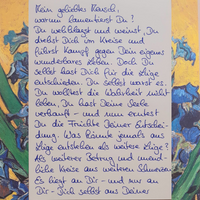 Mein geliebter Mensch,
warum lamentierst Du?
Du wehklagst und weinst, Du
drehst Dich im Kreise und
führst Kampf gegen Dein eigenes
wunderbares Leben. Doch Du
selbst hast Dich für die Lüge
entschieden. Du selbst warst es.
Du wolltest die Wahrheit nicht
leben, Du hast Deine Seele
verkauft - und nun erntest
Du die Früchte Deiner Entschei-
dung. Was könnte jemals aus
Lüge entstehen als weitere Lüge?
Als weiterer Betrug und
liche Kreise aus weiteren
Es liegt an Dir - und nur an
Dir - Dich selbst aus Deiner